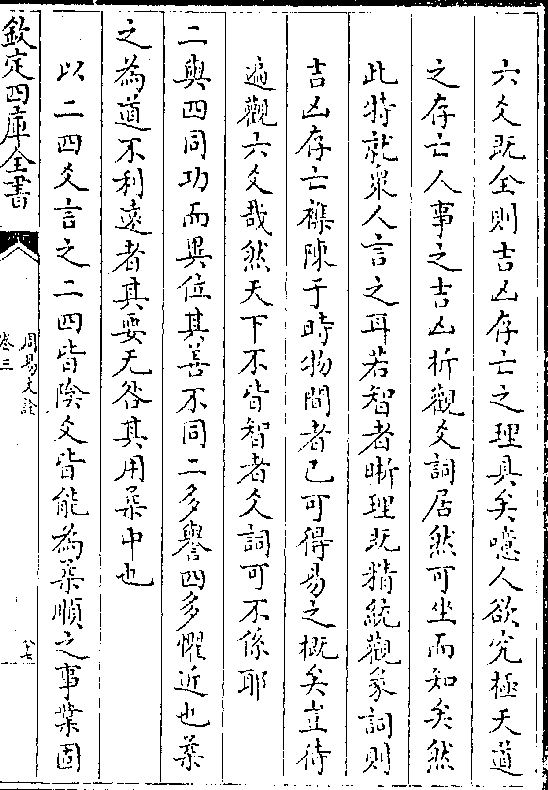 六爻既全則吉凶存亡之理具矣噫人欲究極天道
之存亡人事之吉凶析觀爻詞居然可坐而知矣然
此特就衆人言之耳若智者晰理既精統觀彖詞則
吉凶存亡襍陳于時物間者已可得易之概矣豈待
遍觀六爻哉然天下不皆智者爻詞可不係耶
二與四同功而異位其善不同二多譽四多懼近也柔
之為道不利遠者其要无咎其用柔中也
以二四爻言之二四皆陰爻皆能為柔順之事業固
欽定四庫全書
周易文詮
卷三